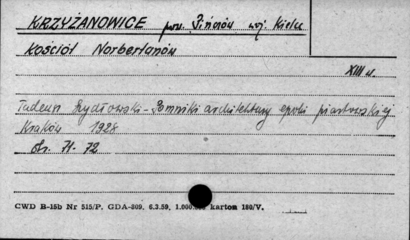 KRZYŻANOWICE pow. Pińczów woj. Kielce
Kościół Norbertanów
XIII w.
Tadeusz Szydłowski - Pomniki architektury epoki piastowskiej
Kraków 1928
str. 71-72
CWD B-15b Nr 515/P. GDA-809. 6.3.59. 1.000. karton 180/V.